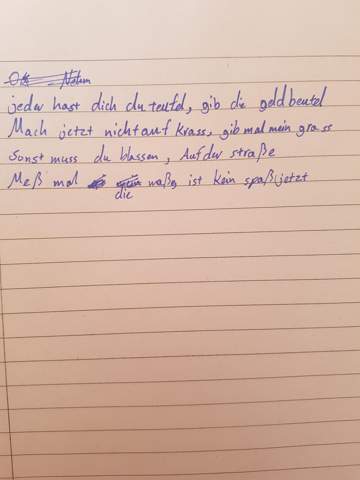 jeder hast dich du teufel, gib die geldbeutel
Mach jetzt nicht auf krass, gib mal mein grass
Sonst muss du blassen, Auf der straße
Meß mal die maße ist kein spaß jetzt